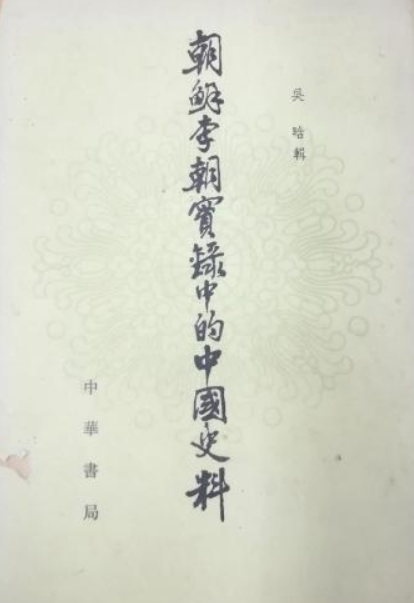 吳晗輯
朝鮮李朝實録中的中國史料
中華書局